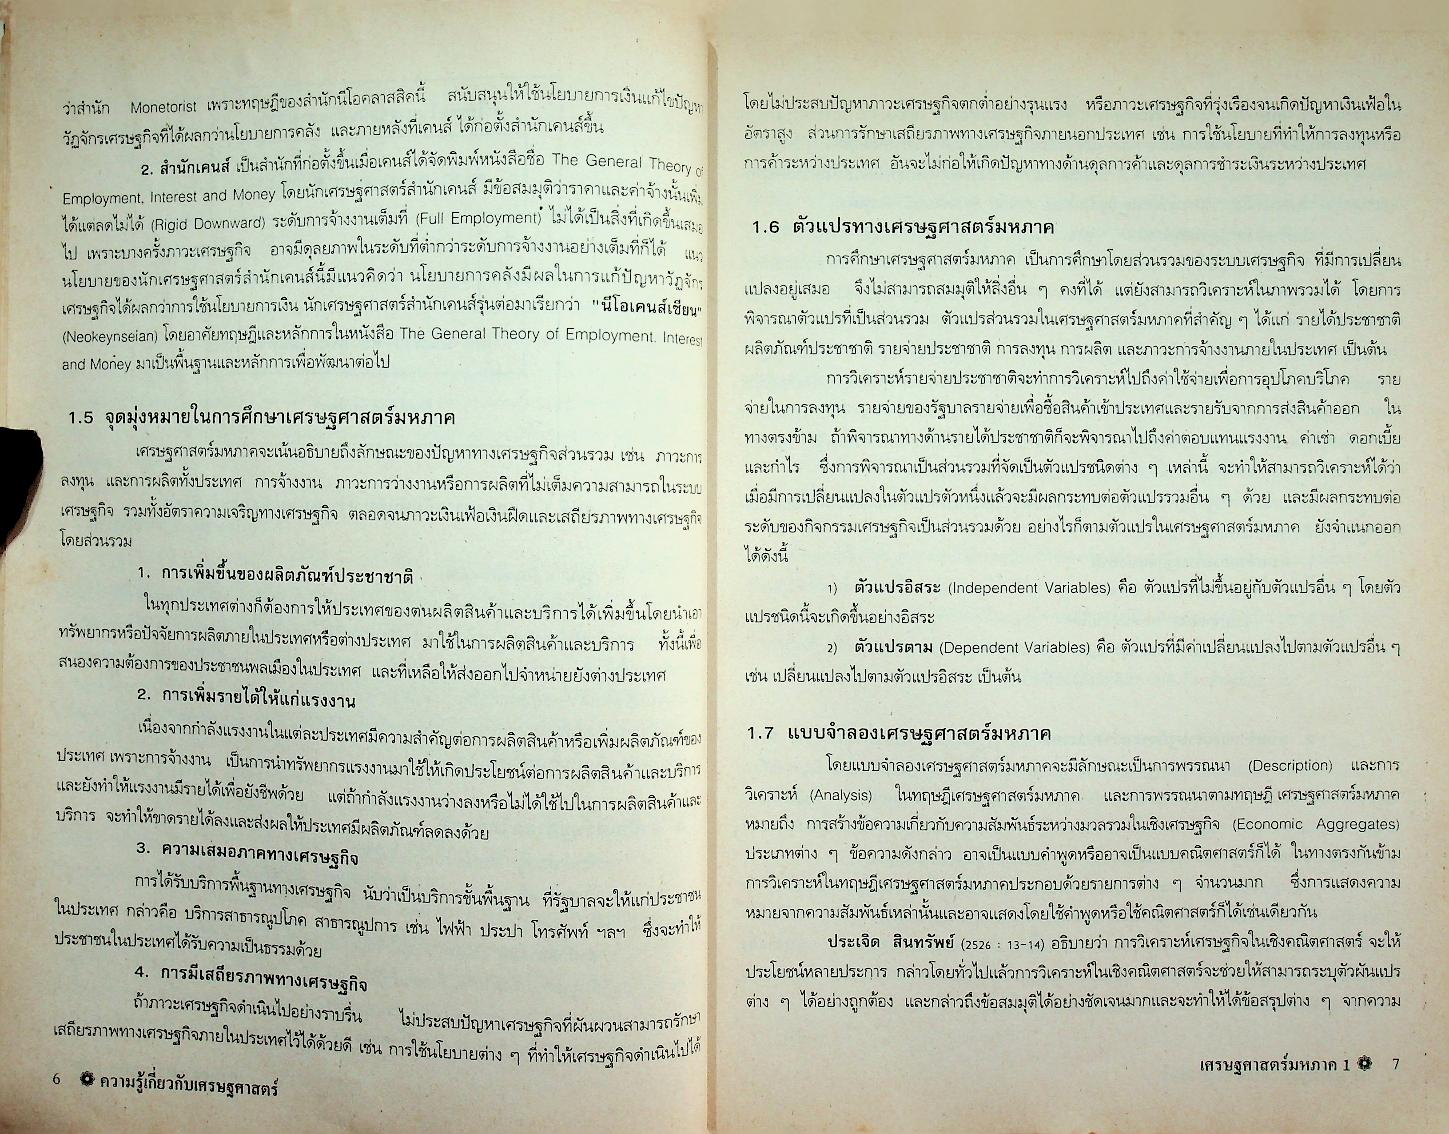 ว่าสำนัก Monetorist เพราะทฤษฎีของสำนักนีโอคลาสสิคนี้ สนับสนุนให้ใช้นโยบายการเงินแก้ไขปัญหา
วัฏจักรเศรษฐกิจที่ได้ผลกว่านโยบายการคลัง และภายหลังที่เคนส์ ได้ก่อตั้งสำนักเคนส์ขึ้น
2. สำนักเคนส์ เป็นสำนักที่ก่อตั้งขึ้นเมื่อเคนส์ได้จัดพิมพ์หนังสือชื่อ The General Theory of
Employment, Interest and Money โดยนักเศรษฐศาสตร์สำนักเคนส์ มีข้อสมมุติว่าราคาและค่าจ้างนั้นเพิ่ม
ได้แต่ลดไม่ได้ (Rigid Downward) ระดับการจ้างงานเต็มที่ (Full Employment) ไม่ได้เป็นสิ่งที่เกิดขึ้นเสมอ
ไป เพราะบางครั้งภาวะเศรษฐกิจ อาจมีดุลยภาพในระดับที่ต่ำกว่าระดับการจ้างงานอย่างเต็มที่ก็ได้ แนว
นโยบายของนักเศรษฐศาสตร์สำนักเคนส์นี้มีแนวคิดว่า นโยบายการคลังมีผลในการแก้ปัญหาวัฏจักร
เศรษฐกิจได้ผลกว่าการใช้นโยบายการเงิน นักเศรษฐศาสตร์สำนักเคนส์รุ่นต่อมาเรียกว่า "นีโอเคนส์เซียน"
(Neokeynseian) โดยอาศัยทฤษฎีและหลักการในหนังสือ The General Theory of Employment. Interest
and Money มาเป็นพื้นฐานและหลักการเพื่อพัฒนาต่อไป
1.5 จุดมุ่งหมายในการศึกษาเศรษฐศาสตร์มหภาค
เศรษฐศาสตร์มหภาคจะเน้นอธิบายถึงลักษณะของปัญหาทางเศรษฐกิจส่วนรวม เช่น ภาวะการ
ลงทุน และการผลิตทั้งประเทศ การจ้างงาน ภาวะการว่างงานหรือการผลิตที่ไม่เต็มความสามารถในระบบ
เศรษฐกิจ รวมทั้งอัตราความเจริญทางเศรษฐกิจ ตลอดจนภาวะเงินเฟ้อเงินฝืดและเสถียรภาพทางเศรษฐกิจ
โดยส่วนรวม
1. การเพิ่มขึ้นของผลิตภัณฑ์ประชาชาติ
ในทุกประเทศต่างก็ต้องการให้ประเทศของตนผลิตสินค้าและบริการได้เพิ่มขึ้นโดยนำเอา
ทรัพยากรหรือปัจจัยการผลิตภายในประเทศหรือต่างประเทศ มาใช้ในการผลิตสินค้าและบริการ ทั้งนี้เพื่อ
สนองความต้องการของประชาชนพลเมืองในประเทศ และที่เหลือให้ส่งออกไปจำหน่ายยังต่างประเทศ
2. การเพิ่มรายได้ให้แก่แรงงาน
เนื่องจากกำลังแรงงานในแต่ละประเทศมีความสำคัญต่อการผลิตสินค้าหรือเพิ่มผลิตภัณฑ์ของ
ประเทศ เพราะการจ้างงาน เป็นการนำทรัพยากรแรงงานมาใช้ให้เกิดประโยชน์ต่อการผลิตสินค้าและบริการ
และยังทำให้แรงงานมีรายได้เพื่อยังชีพด้วย แต่ถ้ากำลังแรงงานว่างลงหรือไม่ได้ใช้ไปในการผลิตสินค้าและ
บริการ จะทำให้ขาดรายได้ลงและส่งผลให้ประเทศมีผลิตภัณฑ์ลดลงด้วย
3. ความเสมอภาคทางเศรษฐกิจ
การได้รับบริการพื้นฐานทางเศรษฐกิจ นับว่าเป็นบริการขั้นพื้นฐาน ที่รัฐบาลจะให้แก่ประชาชน
ในประเทศ กล่าวคือ บริการสาธารณูปโภค สาธารณูปการ เช่น ไฟฟ้า ประปา โทรศัพท์ ฯลฯ ซึ่งจะทำให้
ประชาชนในประเทศได้รับความเป็นธรรมด้วย
4. การมีเสถียรภาพทางเศรษฐกิจ
ถ้าภาวะเศรษฐกิจดำเนินไปอย่างราบรื่น ไม่ประสบปัญหาเศรษฐกิจที่ผันผวนสามารถรักษา
เสถียรภาพทางเศรษฐกิจภายในประเทศไว้ได้ด้วยดี เช่น การใช้นโยบายต่าง ๆ ที่ทำให้เศรษฐกิจดำเนินไปได้
6 ความรู้เกี่ยวกับเศรษฐศาสตร์
โดยไม่ประสบปัญหาภาวะเศรษฐกิจตกต่ำอย่างรุนแรง หรือภาวะเศรษฐกิจที่รุ่งเรืองจนเกิดปัญหาเงินเฟ้อใน
อัตราสูง ส่วนการรักษาเสถียรภาพทางเศรษฐกิจภายนอกประเทศ เช่น การใช้นโยบายที่ทำให้การลงทุนหรือ
การค้าระหว่างประเทศ อันจะไม่ก่อให้เกิดปัญหาทางด้านดุลการค้าและดุลการชำระเงินระหว่างประเทศ
1.6 ตัวแปรทางเศรษฐศาสตร์มหภาค
การศึกษาเศรษฐศาสตร์มหภาค เป็นการศึกษาโดยส่วนรวมของระบบเศรษฐกิจ ที่มีการเปลี่ยน
แปลงอยู่เสมอ จึงไม่สามารถสมมุติให้สิ่งอื่น ๆ คงที่ได้ แต่ยังสามารถวิเคราะห์ในภาพรวมได้ โดยการ
พิจารณาตัวแปรที่เป็นส่วนรวม ตัวแปรส่วนรวมในเศรษฐศาสตร์มหภาคที่สำคัญ ๆ ได้แก่ รายได้ประชาชาติ
ผลิตภัณฑ์ประชาชาติ รายจ่ายประชาชาติ การลงทุน การผลิต และภาวะการจ้างงานภายในประเทศ เป็นต้น
การวิเคราะห์รายจ่ายประชาชาติจะทำการวิเคราะห์ไปถึงค่าใช้จ่ายเพื่อการอุปโภคบริโภค ราย
จ่ายในการลงทุน รายจ่ายของรัฐบาลรายจ่ายเพื่อซื้อสินค้าเข้าประเทศและรายรับจากการส่งสินค้าออก ใน
ทางตรงข้าม ถ้าพิจารณาทางด้านรายได้ประชาชาติก็จะพิจารณาไปถึงค่าตอบแทนแรงงาน ค่าเช่า ดอกเบี้ย
และกำไร ซึ่งการพิจารณาเป็นส่วนรวมที่จัดเป็นตัวแปรชนิดต่าง ๆ เหล่านี้ จะทำให้สามารถวิเคราะห์ได้ว่า
เมื่อมีการเปลี่ยนแปลงในตัวแปรตัวหนึ่งแล้วจะมีผลกระทบต่อตัวแปรรวมอื่น ๆ ด้วย และมีผลกระทบต่อ
ระดับของกิจกรรมเศรษฐกิจเป็นส่วนรวมด้วย อย่างไรก็ตามตัวแปรในเศรษฐศาสตร์มหภาค ยังจำแนกออก
ได้ดังนี้
1) ตัวแปรอิสระ (Independent Variables) คือ ตัวแปรที่ไม่ขึ้นอยู่กับตัวแปรอื่น ๆ โดยตัว
แปรชนิดนี้จะเกิดขึ้นอย่างอิสระ
2) ตัวแปรตาม (Dependent Variables) คือ ตัวแปรที่มีค่าเปลี่ยนแปลงไปตามตัวแปรอื่น ๆ
เช่น เปลี่ยนแปลงไปตามตัวแปรอิสระ เป็นต้น
1.7 แบบจำลองเศรษฐศาสตร์มหภาค
โดยแบบจำลองเศรษฐศาสตร์มหภาคจะมีลักษณะเป็นการพรรณนา (Description) และการ
วิเคราะห์ (Analysis) ในทฤษฎีเศรษฐศาสตร์มหภาค และการพรรณนาตามทฤษฎี เศรษฐศาสตร์มหภาค
หมายถึง การสร้างข้อความเกี่ยวกับความสัมพันธ์ระหว่างมวลรวมในเชิงเศรษฐกิจ (Economic Aggregates)
ประเภทต่าง ๆ ข้อความดังกล่าว อาจเป็นแบบคำพูดหรืออาจเป็นแบบคณิตศาสตร์ก็ได้ ในทางตรงกันข้าม
การวิเคราะห์ในทฤษฎีเศรษฐศาสตร์มหภาคประกอบด้วยรายการต่าง ๆ จำนวนมาก ซึ่งการแสดงความ
หมายจากความสัมพันธ์เหล่านั้นและอาจแสดงโดยใช้คำพูดหรือใช้คณิตศาสตร์ก็ได้เช่นเดียวกัน
ประเจิด สินทรัพย์ (2526 : 13-14) อธิบายว่า การวิเคราะห์เศรษฐกิจในเชิงคณิตศาสตร์ จะให้
ประโยชน์หลายประการ กล่าวโดยทั่วไปแล้วการวิเคราะห์ในเชิงคณิตศาสตร์จะช่วยให้สามารถระบุตัวผันแปร
ต่าง ๆ ได้อย่างถูกต้อง และกล่าวถึงข้อสมมุติได้อย่างชัดเจนมากและจะทำให้ได้ข้อสรุปต่าง ๆ จากความ
เศรษฐศาสตร์มหภาค 1 7